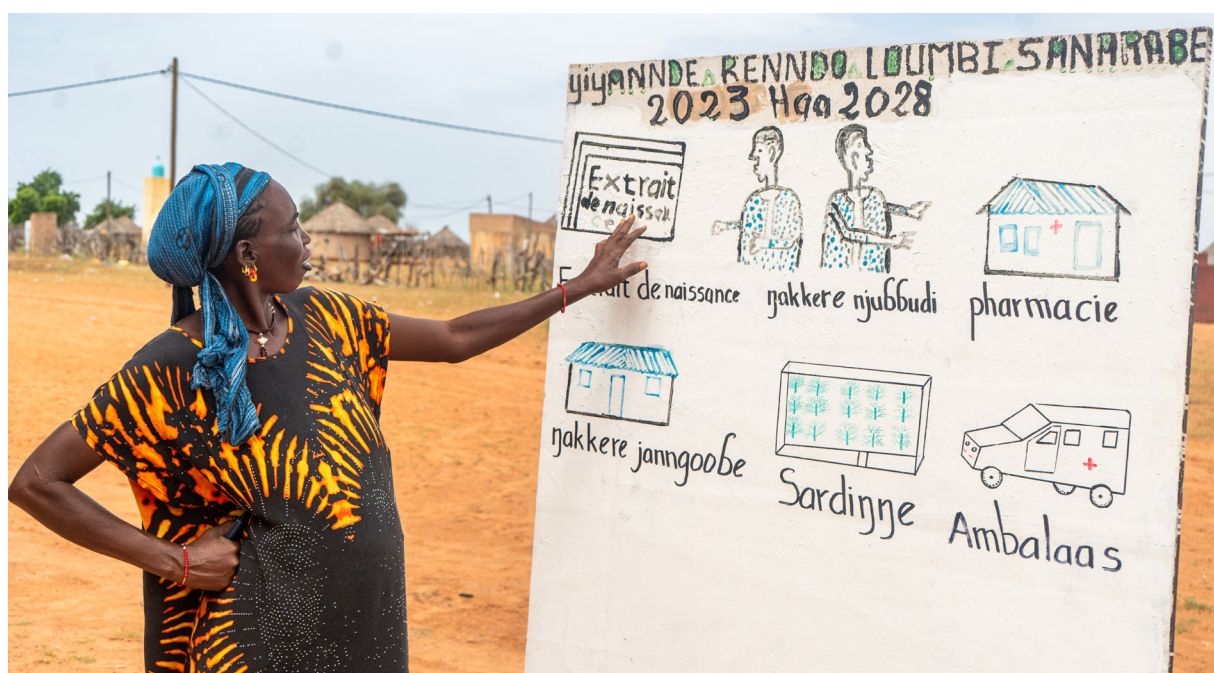 yiyANNDE RENNDO LOUMBI SANARABE
2023 Haa 2028
Extrait
de naissan
ce
Extrait de naissance
ŋakkere njuɓɓudi
pharmacie
ŋakkere janngooɓe
Sardiŋŋe
Ambalaas